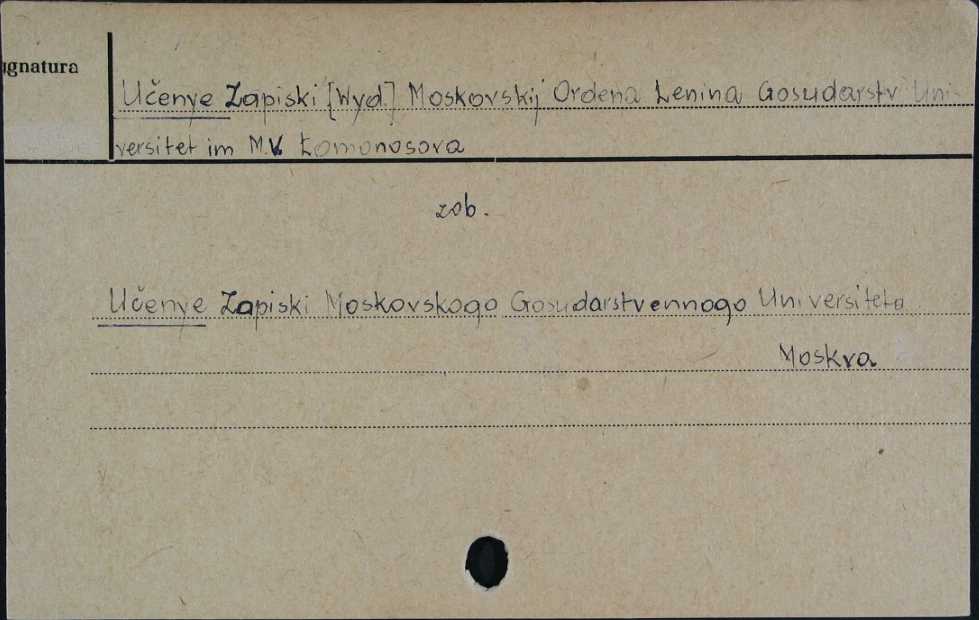 ygnatura
Učenye Zapiski [Wyd.] Moskovskij Ordena Lenina Gosudarstv Uni-
versitet im M.V. Łomonosova
zob.
Učenye Zapiski Moskovskogo Gosudarstvennogo Universiteta
Moskva